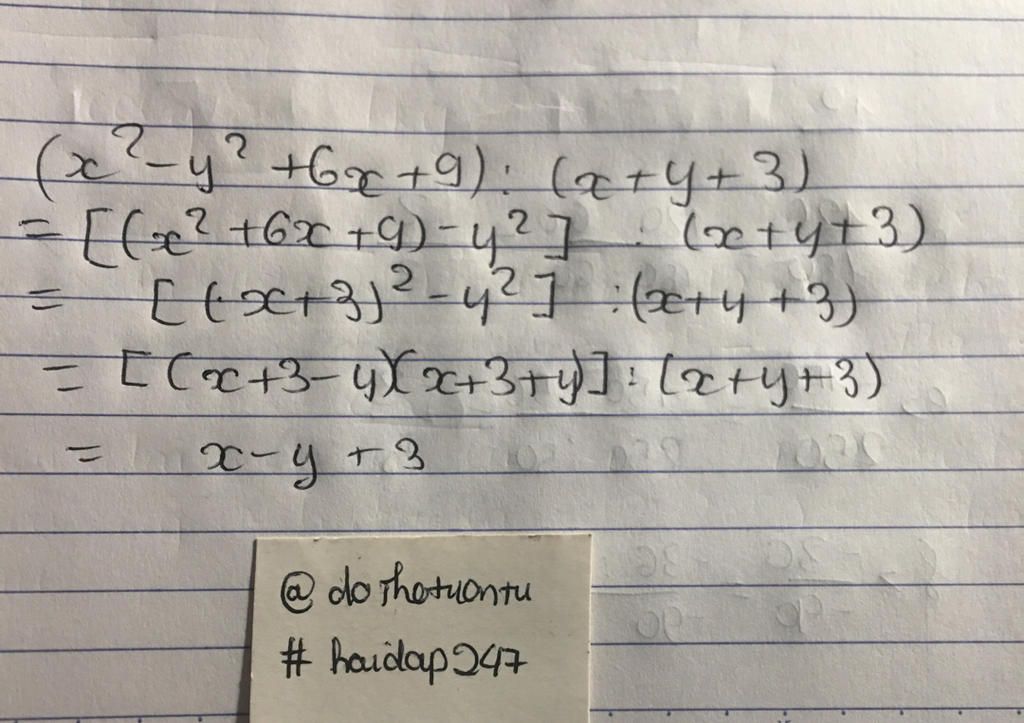 (x² - y² + 6x + 9) : (x + y + 3)
= [(x² + 6x + 9) - y²] : (x + y + 3)
= [(x + 3)² - y²] : (x + y + 3)
= [(x + 3 - y)(x + 3 + y)] : (x + y + 3)
= x - y + 3
# hoidap247